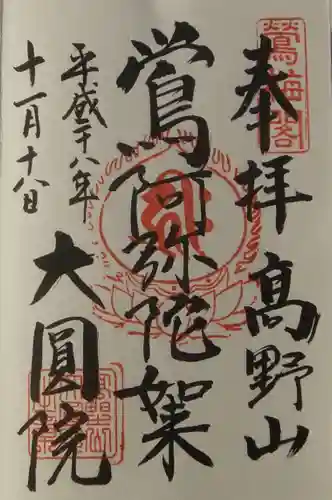 鶯梅閣
奉拝
髙野山
鶯阿弥陀如来
平成廿八年
十一月十八日
大圓院